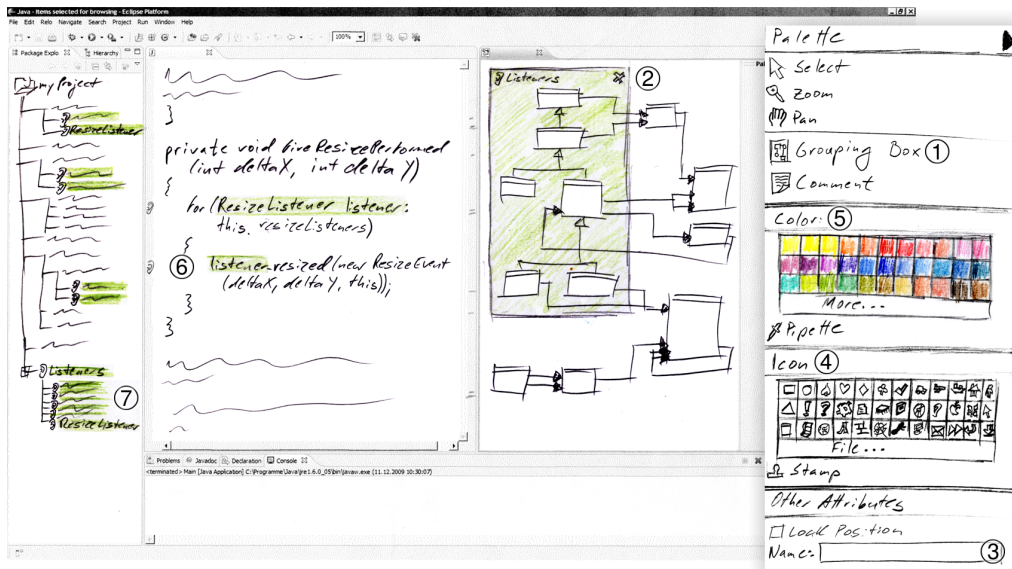 Java - Items selected for browsing - Eclipse Platform
File Edit Relo Navigate Search Project Run Window Help
100%
Package Explo
Hierarchy
myProject
ResizeListener
Listeners
⑦
ResizeListener
}
private void fireResizePerformed
(int deltaX, int deltaY)
{
for (ResizeListener listener:
this.resizeListeners)
{
⑥ listener.resized(new ResizeEvent
(deltaX, deltaY, this));
}
}
Listeners
②
Pal
Problems Javadoc Declaration Console
<terminated> Main [Java Application] C:\Programme\Java\jre1.6.0_05\bin\javaw.exe (11.12.2009 10:30:07)
Palette
Select
Zoom
Pan
Grouping Box ①
Comment
Color: ⑤
More...
Pipette
Icon ④
File...
Stamp
Other Attributes
Lock Position
Name: ③